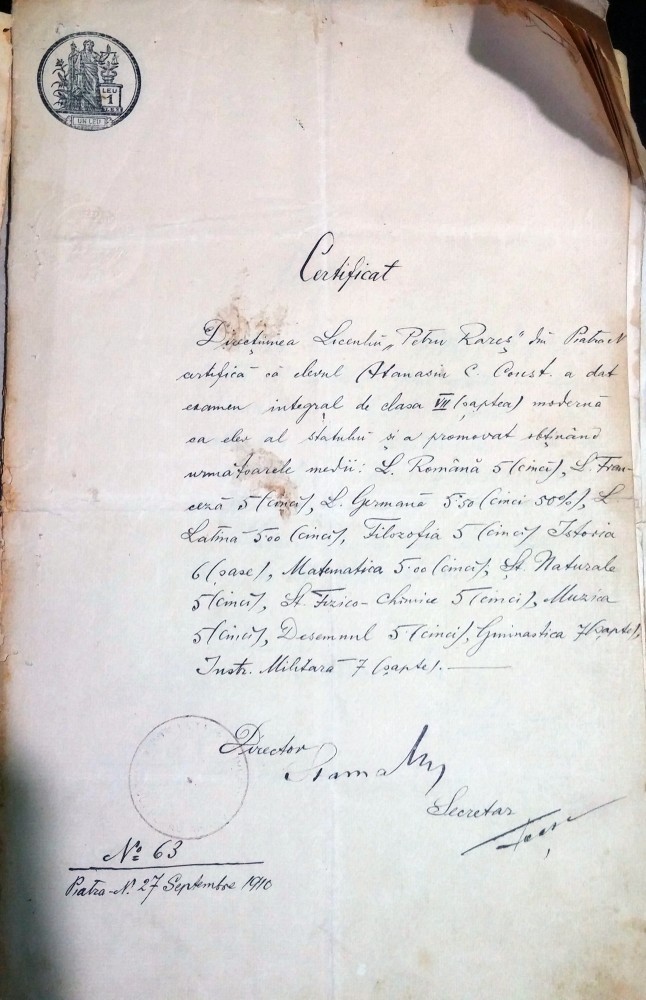 LEU
1
UN LEU
Certificat
Direcțiunea Liceului „Petru Rareș" din Piatra-N
certifică că elevul Atanasiu C. Const. a dat
examen integral de clasa VII (șaptea) modernă
ca elev al statului și a promovat obținând
următoarele medii: L. Română 5 (cinci), L. Fran-
ceză 5 (cinci), L. Germană 5.50 (cinci 50%), L.
Latină 5.00 (cinci), Filozofia 5 (cinci) Istoria
6 (șase), Matematica 5.00 (cinci), Șt. Naturale
5 (cinci), Șt. Fizico-Chimice 5 (cinci), Muzica
5 (cinci), Desemnul 5 (cinci), Gimnastica 7 (șapte),
Instr. Militară 7 (șapte).
Director
Secretar
No 63
Piatra-N. 27 Septembre 1910